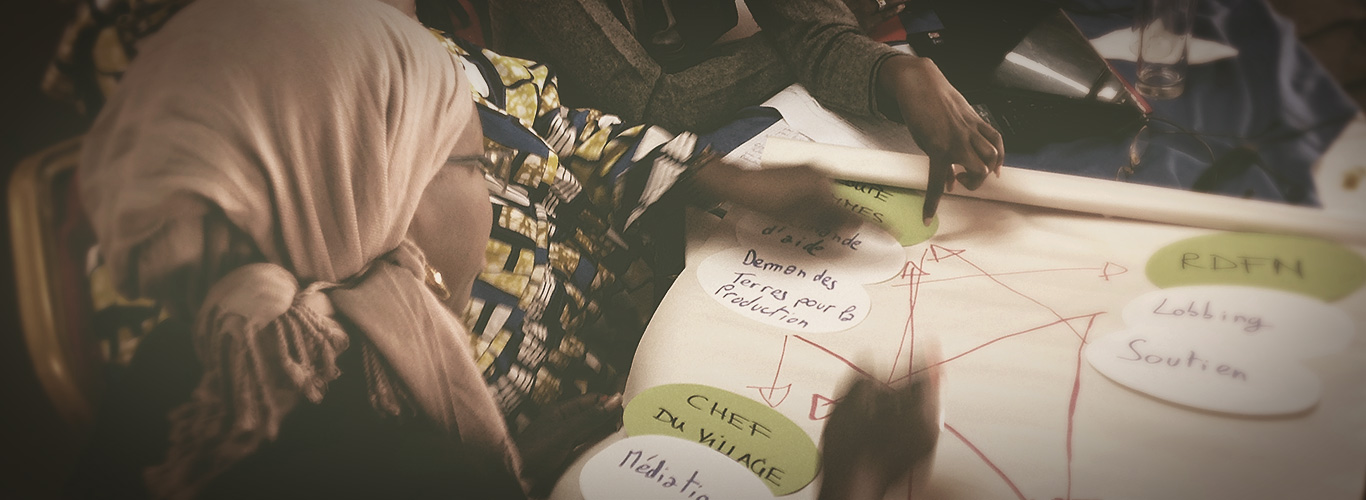 MMES
d'aide
Demandes
Terres pour la
production
RDFN
Lobbing
Soutien
CHEF
DU VILLAGE
Médiatio